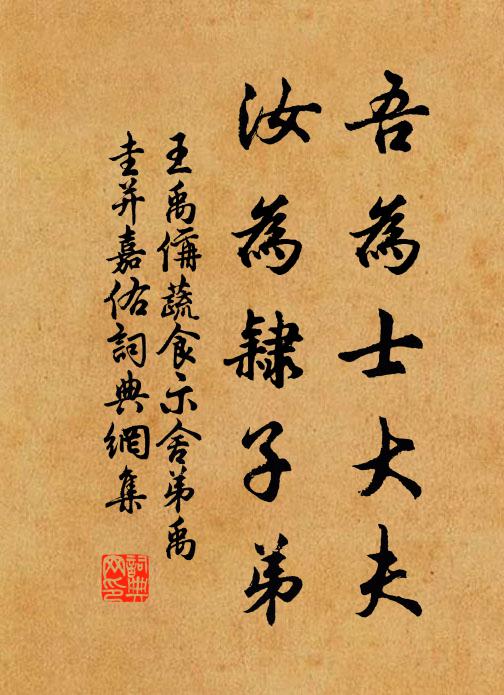 吾為士大夫
汝為隸子弟
王禹偁蔬食示舍弟禹
圭并嘉佑詞典網集
詞典
网印